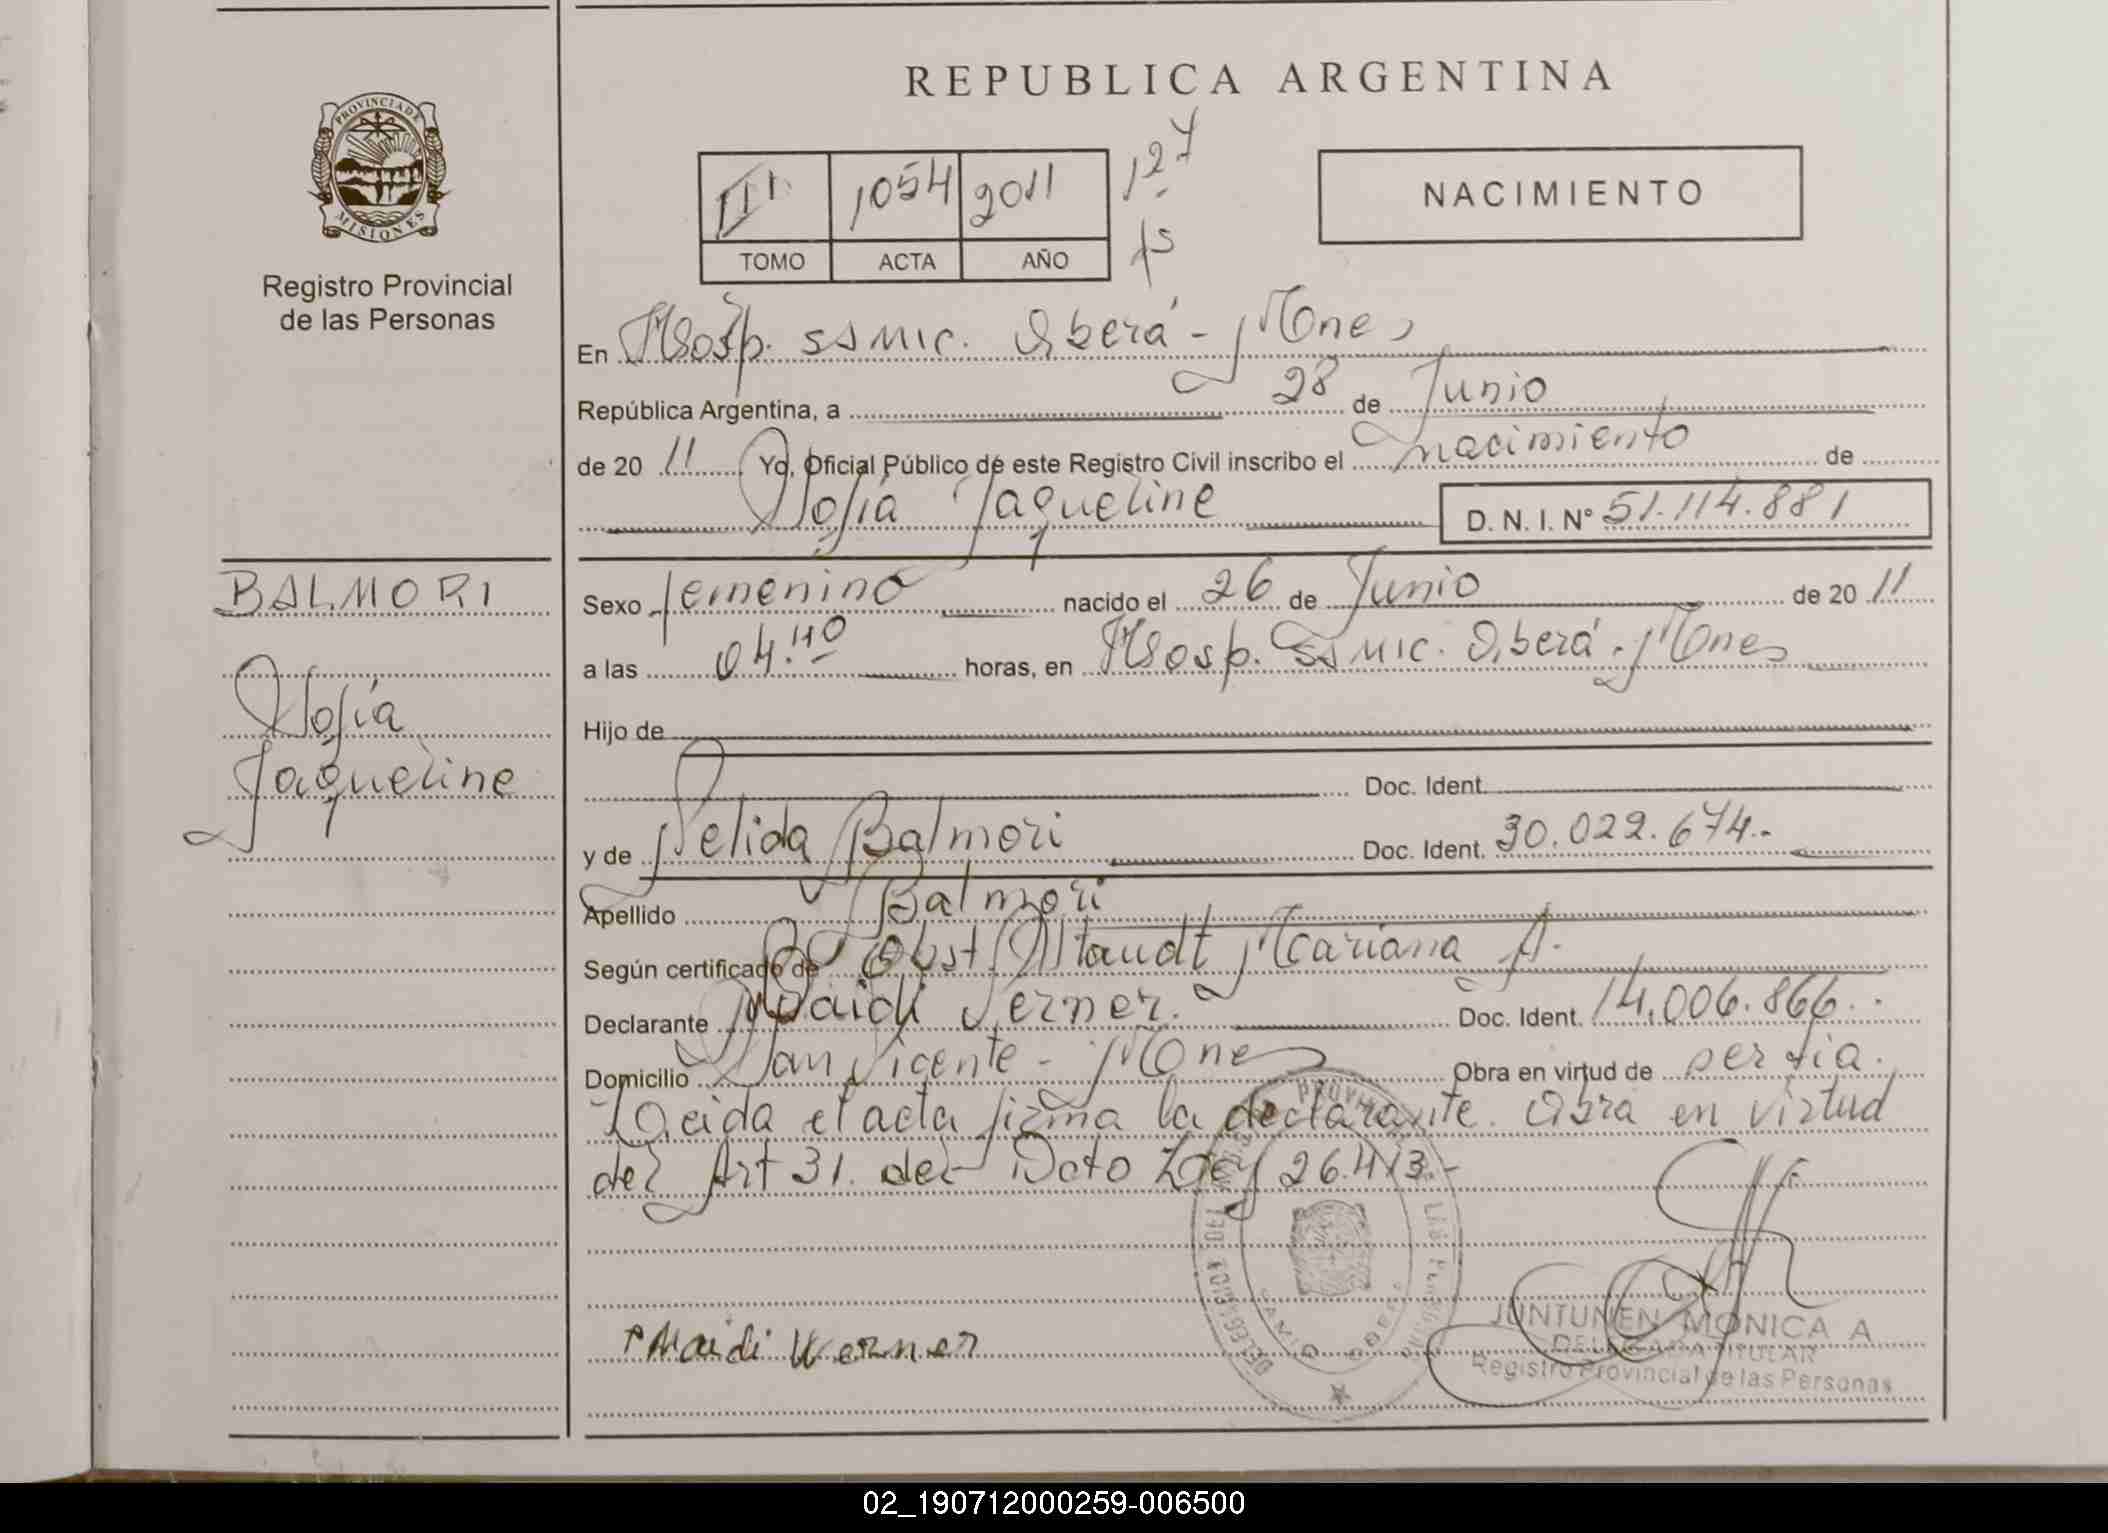 REPUBLICA ARGENTINA
PROVINCIA DE
MISIONES
Registro Provincial
de las Personas
III 1054 2011
TOMO ACTA AÑO
127
fs
NACIMIENTO
En Hosp. SSMIC. Oberá - Mnes
República Argentina, a 28 de Junio
de 20 11 Yo, Oficial Público de este Registro Civil inscribo el nacimiento de
Sofía Jaqueline D. N. I. Nº 51.114.881
BALMORI
Sofía
Jaqueline
Sexo femenino nacido el 26 de Junio de 20 11
a las 04:40 horas, en Hosp. SSMIC. Oberá - Mnes
Hijo de
Doc. Ident.
y de Nelida Balmori Doc. Ident. 30.022.674.-
Apellido Balmori
Según certificado de Obst Staudt Mariana A.
Declarante Haidi Werner. Doc. Ident. 14.006.866.
Domicilio San Vicente - Mnes Obra en virtud de ser tia.
Leida el acta firma la declarante. Obra en virtud
del Art 31. del Dcto Ley 26.413-
Haidi Werner
JUNTUNEN MONICA A
DELEGADA TITULAR
Registro Provincial de las Personas
02_190712000259-006500